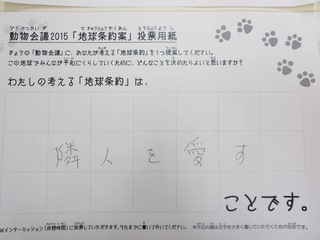 動物会議2015「地球条約案」投票用紙
きょうの「動物会議」に、あなたが考える「地球条約」を1つ提案してください。
この地球でみんなが平和にくらしていくために、どんなことを決めたらよいと思いますか?
わたしの考える「地球条約」は、
隣人を愛す
ことです。
※インターミッション(休憩時間)に投票していただきます。